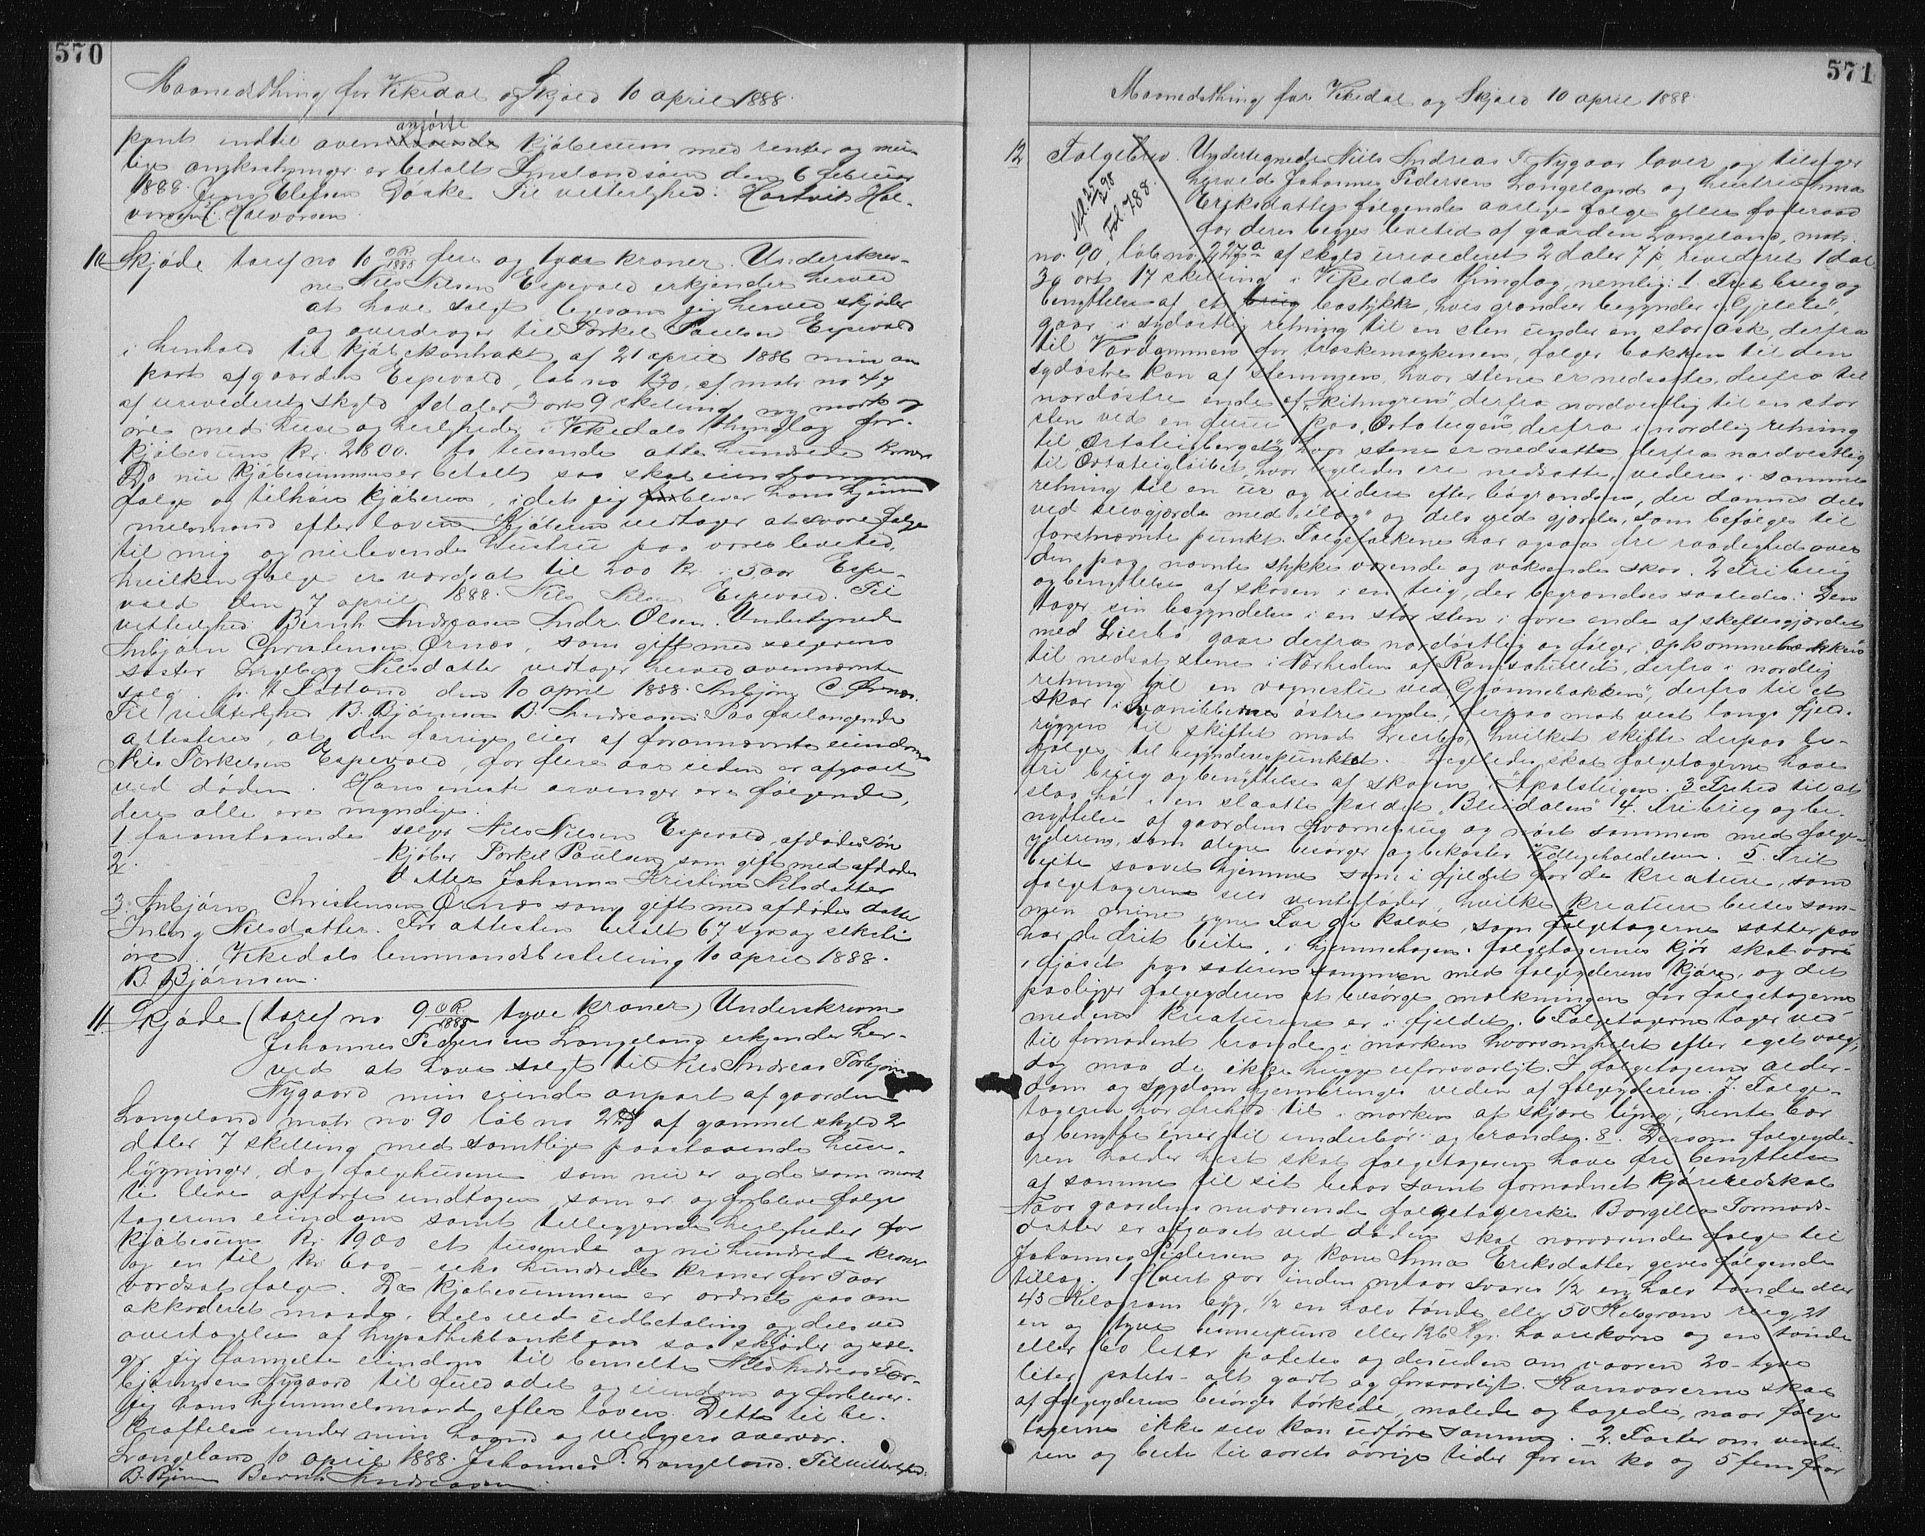 570
Maanedsthing for Vikedal og Skjold 10 april 1888.
pant indtil oven anførte kjøbesum med renter og mu-
lige omkostninger er betalt. Imslandssøen den 6 februar
1888. Jens Elefsen Daske. Til vitterlighed: Hartvik Hal-
vorsen. Halvorsen.
10 Skjøde taref no 10 OR/1888 fire og tyve kroner. Underskrev-
ne Nils Nilsen Espevold erkjender herved
at have solgt ligesom jeg herved skjøder
og overdrager til Torkel Paulsen Espevold
i henhold til kjøbekontrakt af 21 april 1886 min an
part af gaarden Espevold, løb no 130, af matr no
af urevideret skyld 1 daler 3 ort 9 skilling ny mark og
øre med huse og herligheder i Vikedals thinglag for
kjøbesum kr. 2800. to tusende otte hundrede kroner
Da nu kjøbesummen er betalt saa skal eiendommen
følge og tilhøre kjøberen idet jeg bliver hans hjem-
melsmand efter loven. Kjøberen vedtager at svare følge
til mig og nulevende hustru paa vores levetid,
hvilken følge er værdsat til 200 kr. i 5 aar. Espe-
vold den 7 april 1888. Nils Nilsen Espevold. Til
vitterlighed: Bernh Andreasen Andr. Olsen. Undertegnede
Anbjørn Christensen Ørnes, som gift med sælgerens
søster Ingeborg Nilsdatter vedtager herved ovennævnte
salg. p. t. Østland den 10 april 1888. Anbjørn C. Ørnes.
Til vitterlighed B. Bjørnsen B. Andreasen. Paa forlangende
attesteres, at den forrige eier af forannævnte eiendom
Nils Torkelsen Espevold, for flere aar siden er afgaaet
ved døden. Hans eneste arvinger ere følgende,
dere alle ere myndige:
1. foranstaaende selger Nils Nilsen Espevold, afdødes søn
2. kjøber Torkel Paulsen, som gift med afdødes
datter Johanne Kristine Nilsdatter
3. Anbjørn Christensen Ørnes som gift med afdødes datter
Inborg Nilsdatter. For attesten betalt 67 syv og seksti
øre. Vikedals lensmandsbestilling 10 april 1888.
B. Bjørnsen.
11 Skjøde (taref no 9 OR/1888 tyve kroner) Underskrevne
Johannes Pedersen Langeland erkjender her-
ved at have solgt til Nils Andreas Torbjørns
Nygaard min eiende anpart af gaarden
Langeland matr no 90 løb no 227a af gammel skyld 2
daler 7 skilling med samtlige paastaaende huse
bygninger, dog følgehusene som nu er og de som maat
te blive opførte undtagen som er og forblive følge
tagerens eiendom samt tilliggende herligheder for
kjøbesum kr. 1900 et tusende og ni hundrede kroner
og en til kr. 600 – seks hundrede kroner for 5 aar
værdsat følge. Da kjøbesummen er ordnet paa om
akkorderet maade, dels ved udbetaling og dels ved
overtagelse af hypothekbanklaan saa skjøder og sæl-
ger jeg formeldte eiendom til bemeldte Nils Andreas Tor-
bjørnsen Nygaard til fuld odel og eiendom og forbliver
jeg hans hjemmelsmand efter loven. Dette til be-
kræftelse under min haand og vidners overvær.
Langeland 10 april 1888. Johannes P. Langeland. Til vitterlighed:
B. Bjørn Bernh Andreasen.
571
Maanedsthing for Vikedal og Skjold 10 april 1888
12 Følgebrev. Undertegnede Nils Andreas T. Nygaar lover og tilsiger
Afl. 25/1 98 Fol 788.
herved Johannes Pedersen Langeland og hustru Anna
Eriksdatter følgende aarlige følge eller foderaad
for deres begges levetid af gaarden Langeland, matr.
no. 90, løb no. 227a af skyld urevideret 2 daler 7 s revideret 1 dal
3 ort 17 skilling i Vikedals thinglag, nemlig: 1. Frit brug og
benyttelse af et brug bostykke, hvis grændser begynder i "Gjellete",
gaar i sydøstlig retning til en sten under en stor ask, derfra
til Vordammen for træskemaskinen, følger bækken til den
sydøstre kan af stenrøgen, hvor stene er nedsatte, derfra til
nordøstre ende af "Kitmyren", derfra nordvestlig til en stor
sten ved en furu paa "Ortateigen", derfra i nordlig retning
til Ortateigberget", hvor stene er nedsatte derfra nordvestlig
til Ortateigleitet, hvor ligeledes ere nedsatte, videre i samme
retning til en ur og videre efter bøgrænden, der dannes dels
ved teiegjærde med "ilag" og dels ved gjærde, som befølges til
førstnævnte punkt. Følgefolkene har ogsaa fri raadighed over
den paa nævnte stykke værende og voksende skov. 2. Fri brug
og benyttelse af skoven i en teig, der begrændses saaledes: Den
tager sin begyndelse i en stor sten i øvre ende af skiftesgjærdet
med Lierbø, gaar derfra nordøstlig og følger opkommebækken
til nedsat stene i Nærheden af Ramsahellet, derfra i nordlig
retning til en vognesti ved "Grønnebakken", derfra til et
skar i Svaniblenes østre ende, derpaa mod vest langs fjeld-
ryggen til skiftet mod Lierbø, hvilket skifte derpaa be-
følges til begyndelsespunktet. Ligeledes skal følgetagerne have
fri brug og benyttelse af skoven i "Apalsteigen. 3. Frihed til at
slaa hø i en slaatte kaldet "Bleidalen" 4. Fri brug og be-
nyttelse af gaardens Kvørnebrug og nøst sammen med følge-
yderen, som alene besørger og bekoster Vedligeholdelsen. 5. Frit
beite saavel hjemme som i fjeldet for de kreature, som
følgetageren selv vinterføder, hvilke kreature beites sam-
men mine egne. For de kalve, som følgetagerne sætter paa
har de frit beite i hjemmehagen. følgetagernes kjør skal være
i fjøset paa sæteren sammen med følgeyderens kjøre, og det
paaligger følgeyderen at besørge malkningen for følgetagerne
medens kreaturene er i fjeldet. 6. Følgetagerne tager ved
til fornødent brænde i marken hvorsomhelst efter eget valg,
dog maa de ikke hugge uforsvarligt. I følgetagernes alder-
dom og sygdom hjembringes veden af følgeyderen. 7. Følge-
tageren har frihed til i marken at skjære lyng, hente bær
og benytte ener til underbør og brænde. 8. Dersom følgeyde-
ren holder hest skal følgetageren have fri benyttelse
af samme til sit behov samt fornødent kjøreredskab
Naar gaardens nuværende følgetagerske Borgella Tormods-
datter er afgaaet ved døden skal nærværende følge til
Johannes Pedersen og kone Anna Eriksdatter gives følgende
tillæg. 1. Hvert aar inden nytaar svares 1/2 en halv tønde eller
43 Kilogram byg, 1/2 en halv tønde eller 50 Kilogram rug, 21
en og tyve bismerpund eller 126 Kgr. havrekorn og en tønde
eller 160 liter potetes og desuden om vaaren 20 – tyve
liter potets – alt godt og forsvarligt. Kornvarerne skal
af følgeyderen besørges tørkede, malede og bagede, naar følge
tagerne ikke selv kan udføre samme. 2. Foster om vinte-
ren og beite til aarets øvrige tider for en ko og 5 fem faar